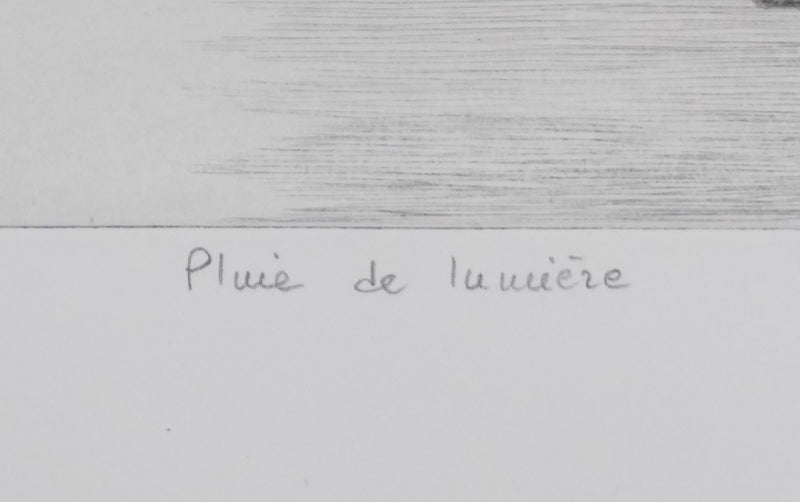 Pluie de lumière